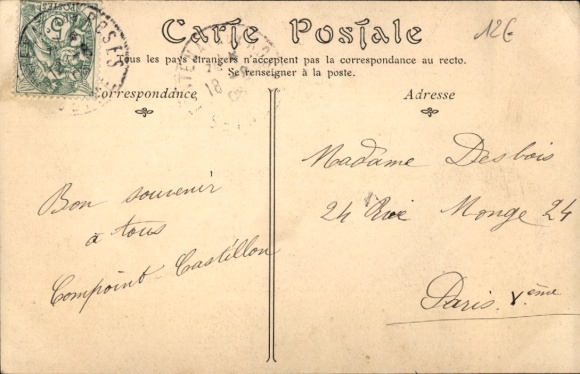 Carte Postale
12€
Tous les pays étrangers n'acceptent pas la correspondance au recto.
Se renseigner à la poste.
Correspondance
Adresse
ROSES
18
5
Bon souvenir
à tous
Compoint-Castillon
Madame Desbois
24 Rue Monge 24
Paris. Vème